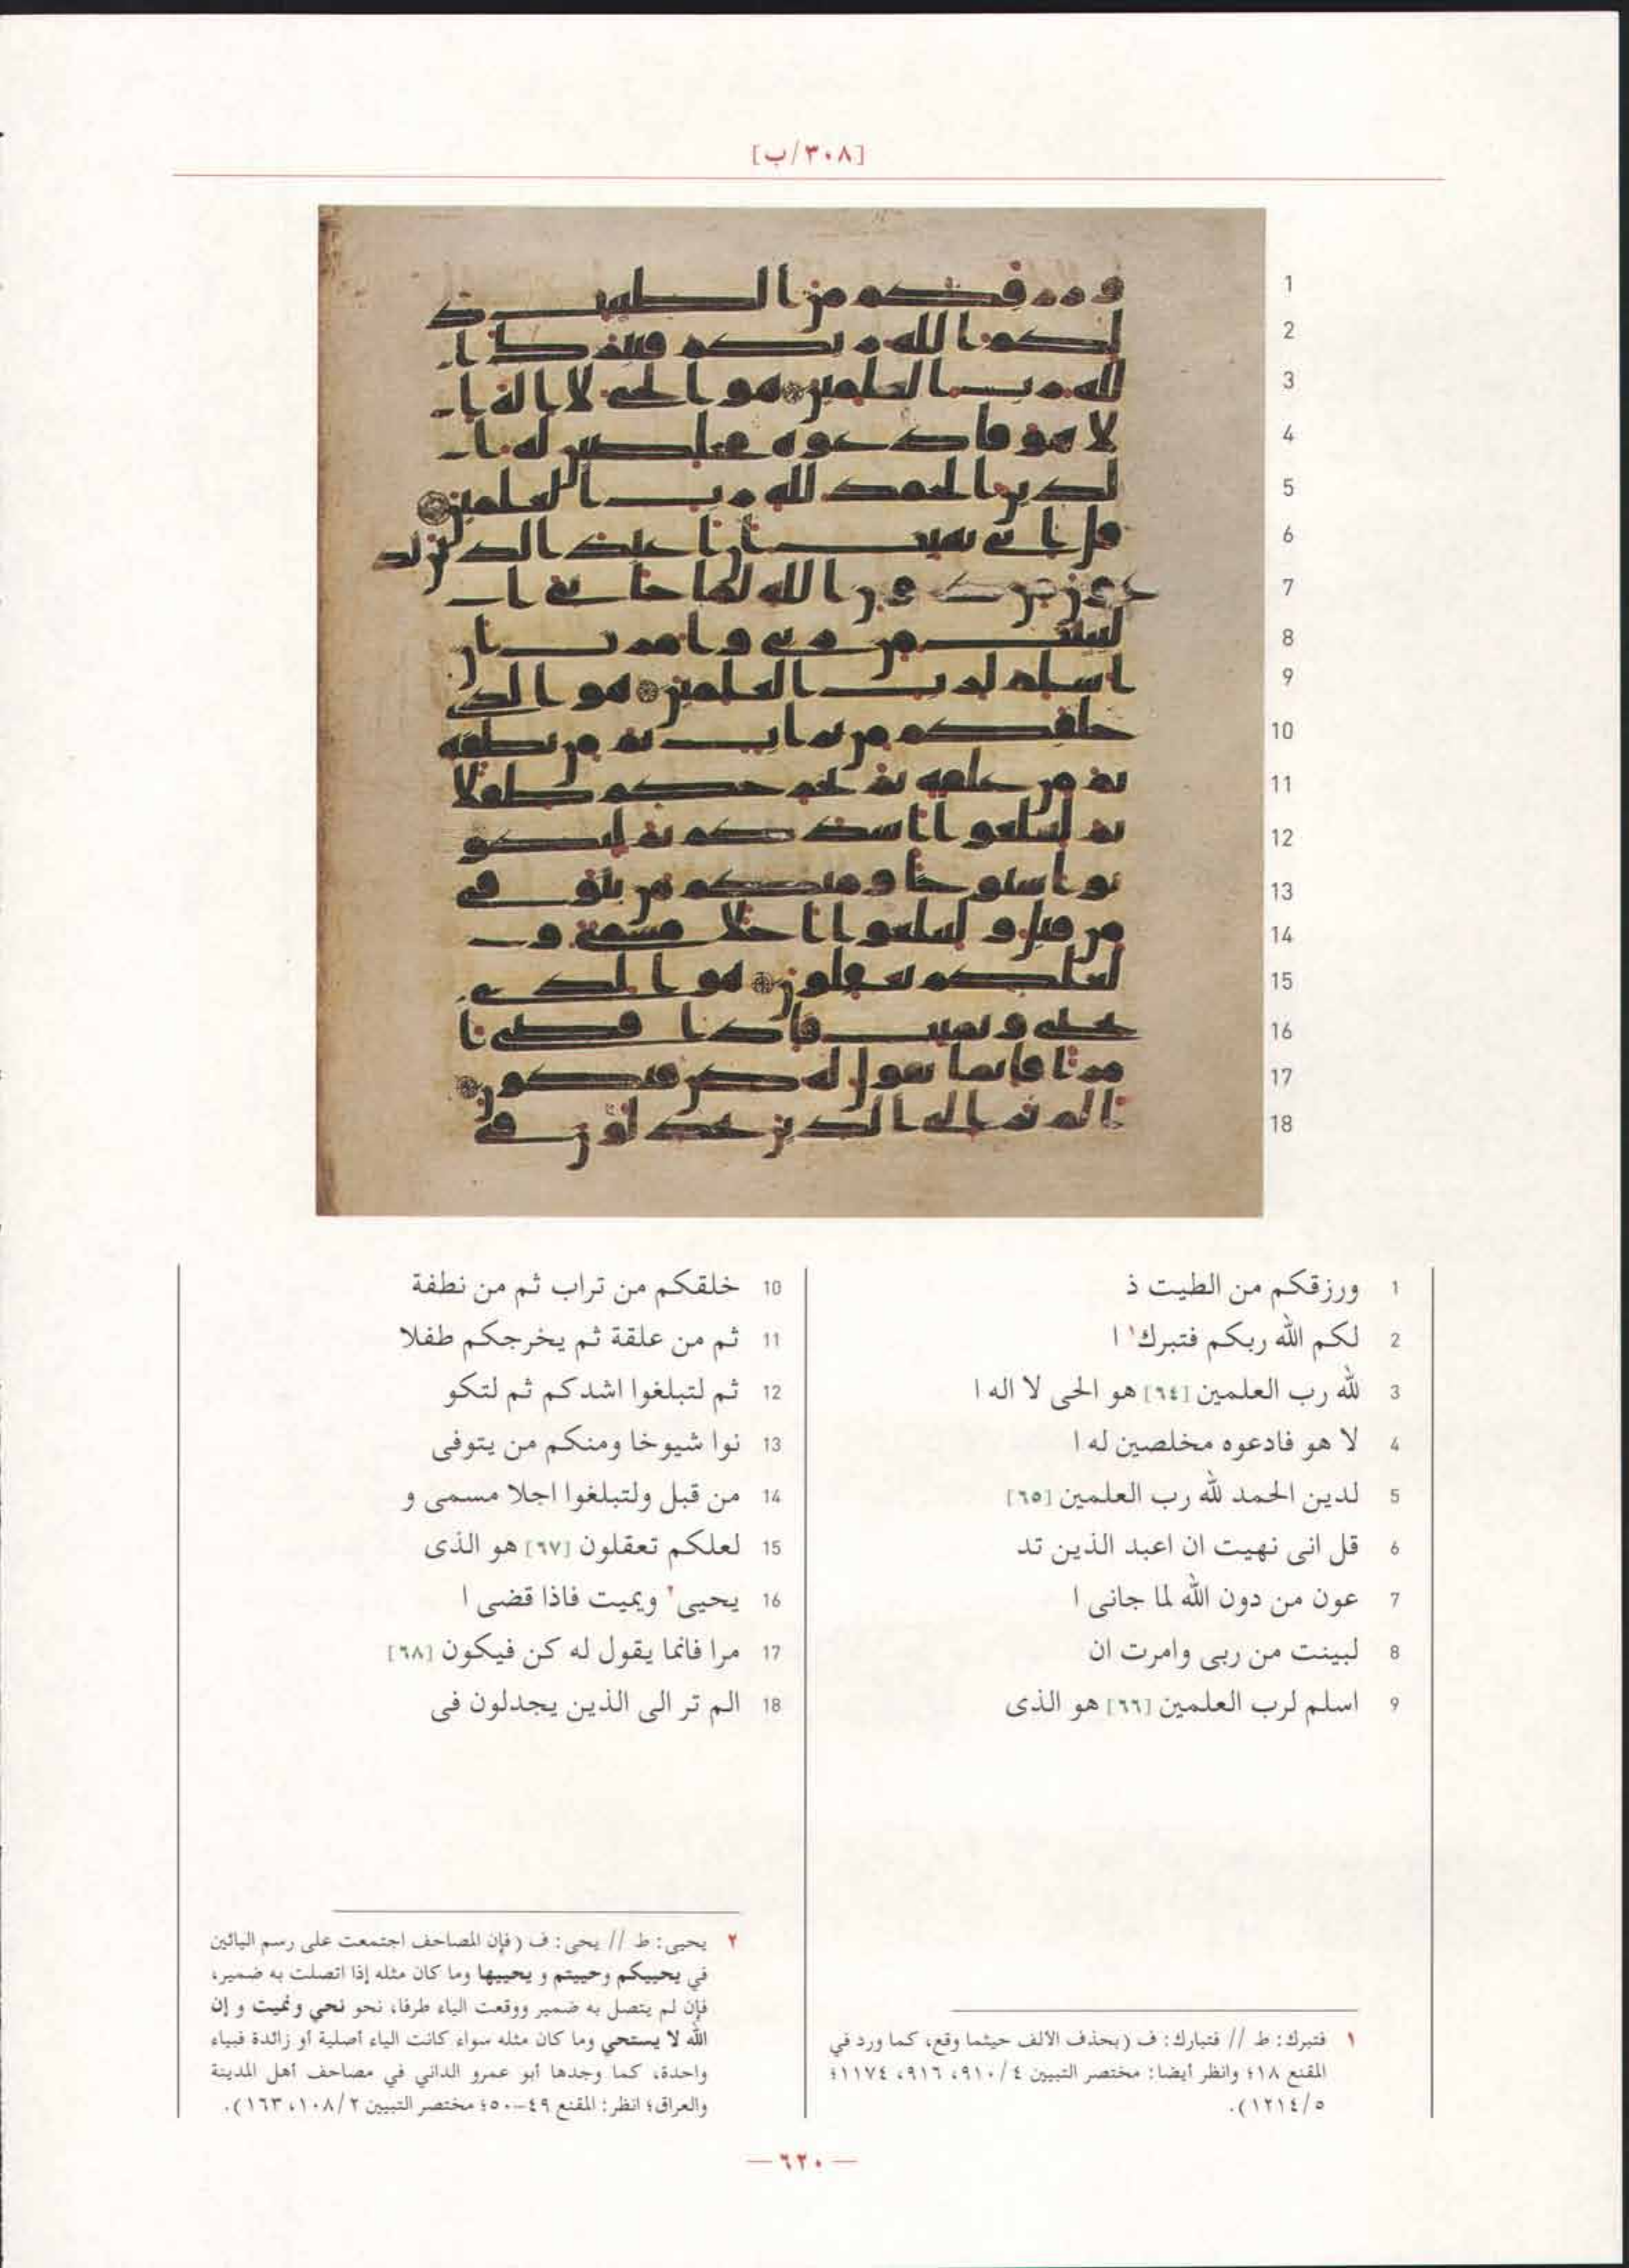 [٣٠٨/ب]
1 ورزقكم من الطيت ذ
2 لكم الله ربكم فتبرك١ ا
3 لله رب العلمين [٦٤] هو الحى لا اله ا
4 لا هو فادعوه مخلصين له ا
5 لدين الحمد لله رب العلمين [٦٥]
6 قل انى نهيت ان اعبد الذين تد
7 عون من دون الله لما جانى ا
8 لبينت من ربى وامرت ان
9 اسلم لرب العلمين [٦٦] هو الذى
10 خلقكم من تراب ثم من نطفة
11 ثم من علقة ثم يخرجكم طفلا
12 ثم لتبلغوا اشدكم ثم لتكو
13 نوا شيوخا ومنكم من يتوفى
14 من قبل ولتبلغوا اجلا مسمى و
15 لعلكم تعقلون [٦٧] هو الذى
16 يحيى٢ ويميت فاذا قضى ا
17 مرا فانما يقول له كن فيكون [٦٨]
18 الم تر الى الذين يجدلون فى
١ فتبرك: ط // فتبارك: ف (بحذف الالف حيثما وقع، كما ورد في
المقنع ١٨؛ وانظر أيضا: مختصر التبيين ٤/ ٩١٠، ٩١٦، ١١٧٤؛
٥/ ١٢١٤).
٢ يحيى: ط // يحى: ف (فإن المصاحف اجتمعت على رسم اليائين
في يحييكم وحييتم و يحييها وما كان مثله إذا اتصلت به ضمير،
فإن لم يتصل به ضمير ووقعت الياء طرفا، نحو نحي ونميت و إن
الله لا يستحي وما كان مثله سواء كانت الياء أصلية أو زائدة فبياء
واحدة، كما وجدها أبو عمرو الداني في مصاحف أهل المدينة
والعراق؛ انظر: المقنع ٤٩-٥٠؛ مختصر التبيين ٢/ ١٠٨، ١٦٣).
— ٦٢٠ —